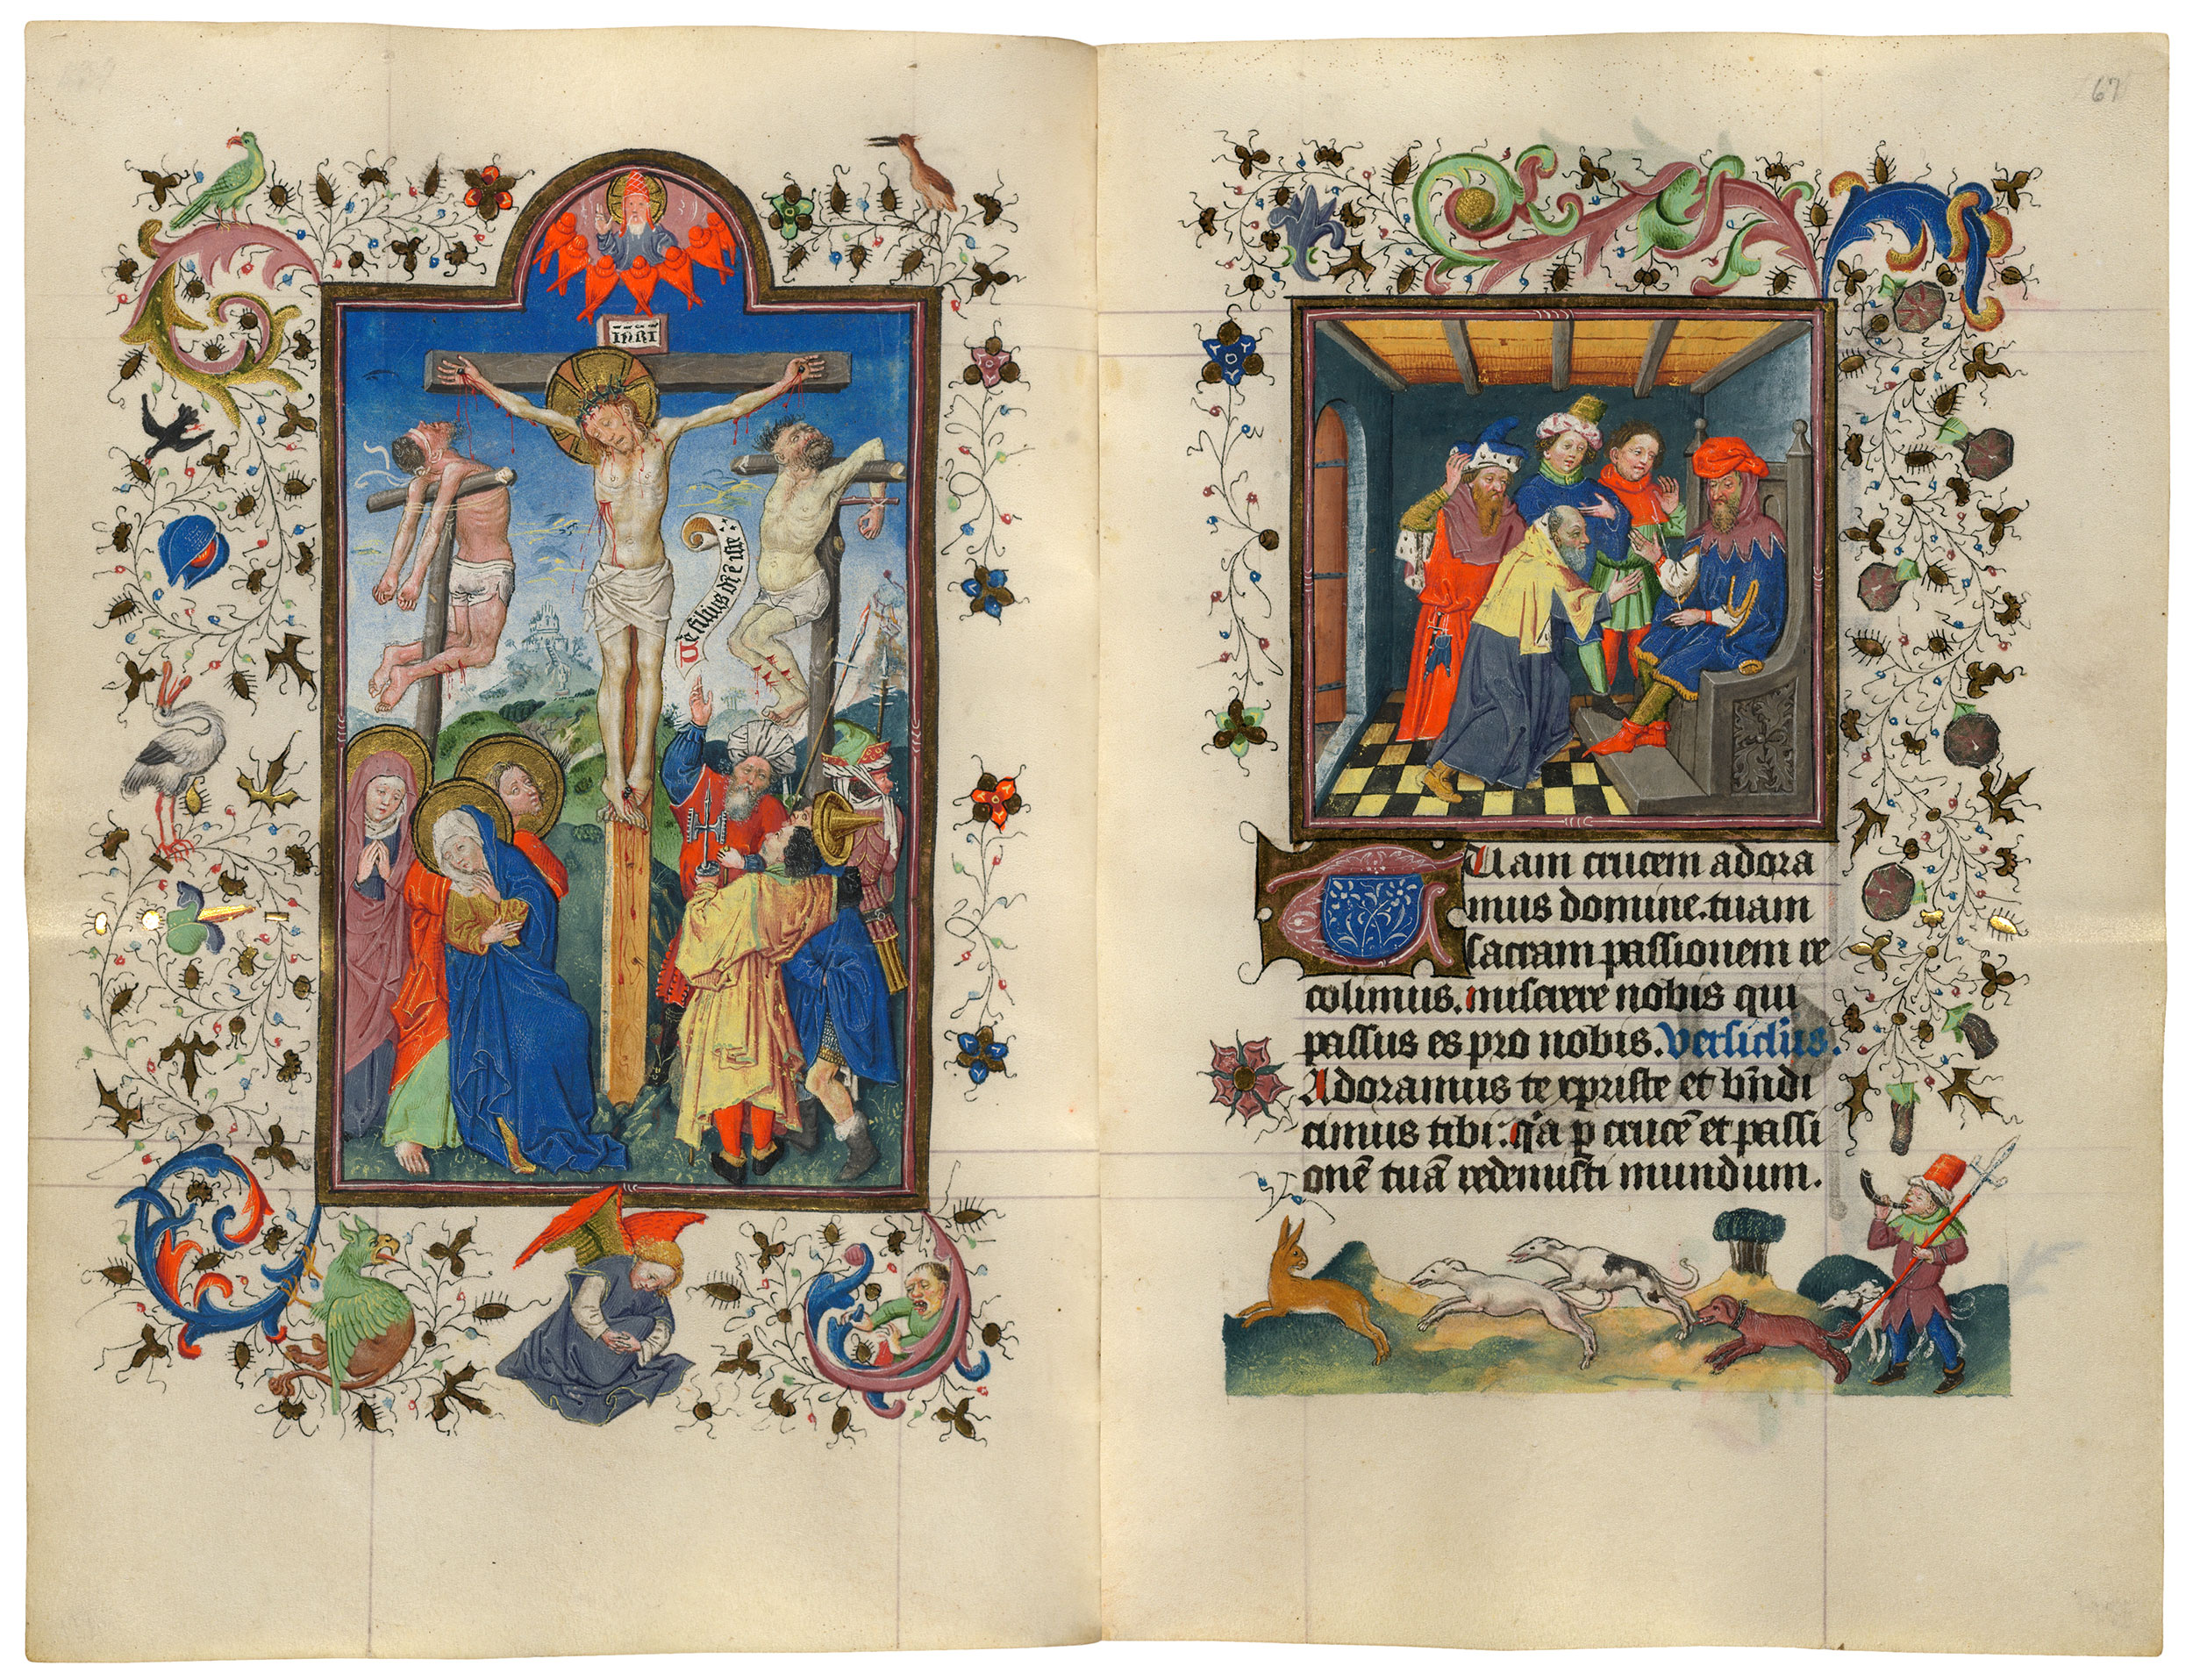 INRI
Ve filius dei e iste
67
TUam crucem adora
mus domine. tuam
sacram passionem re
colimus. miserere nobis qui
passus es pro nobis. Versiclus.
Adoramus te xpriste et bn̄di
cimus tibi: q̄a p crucē et passi
onē tuā redemisti mundum.